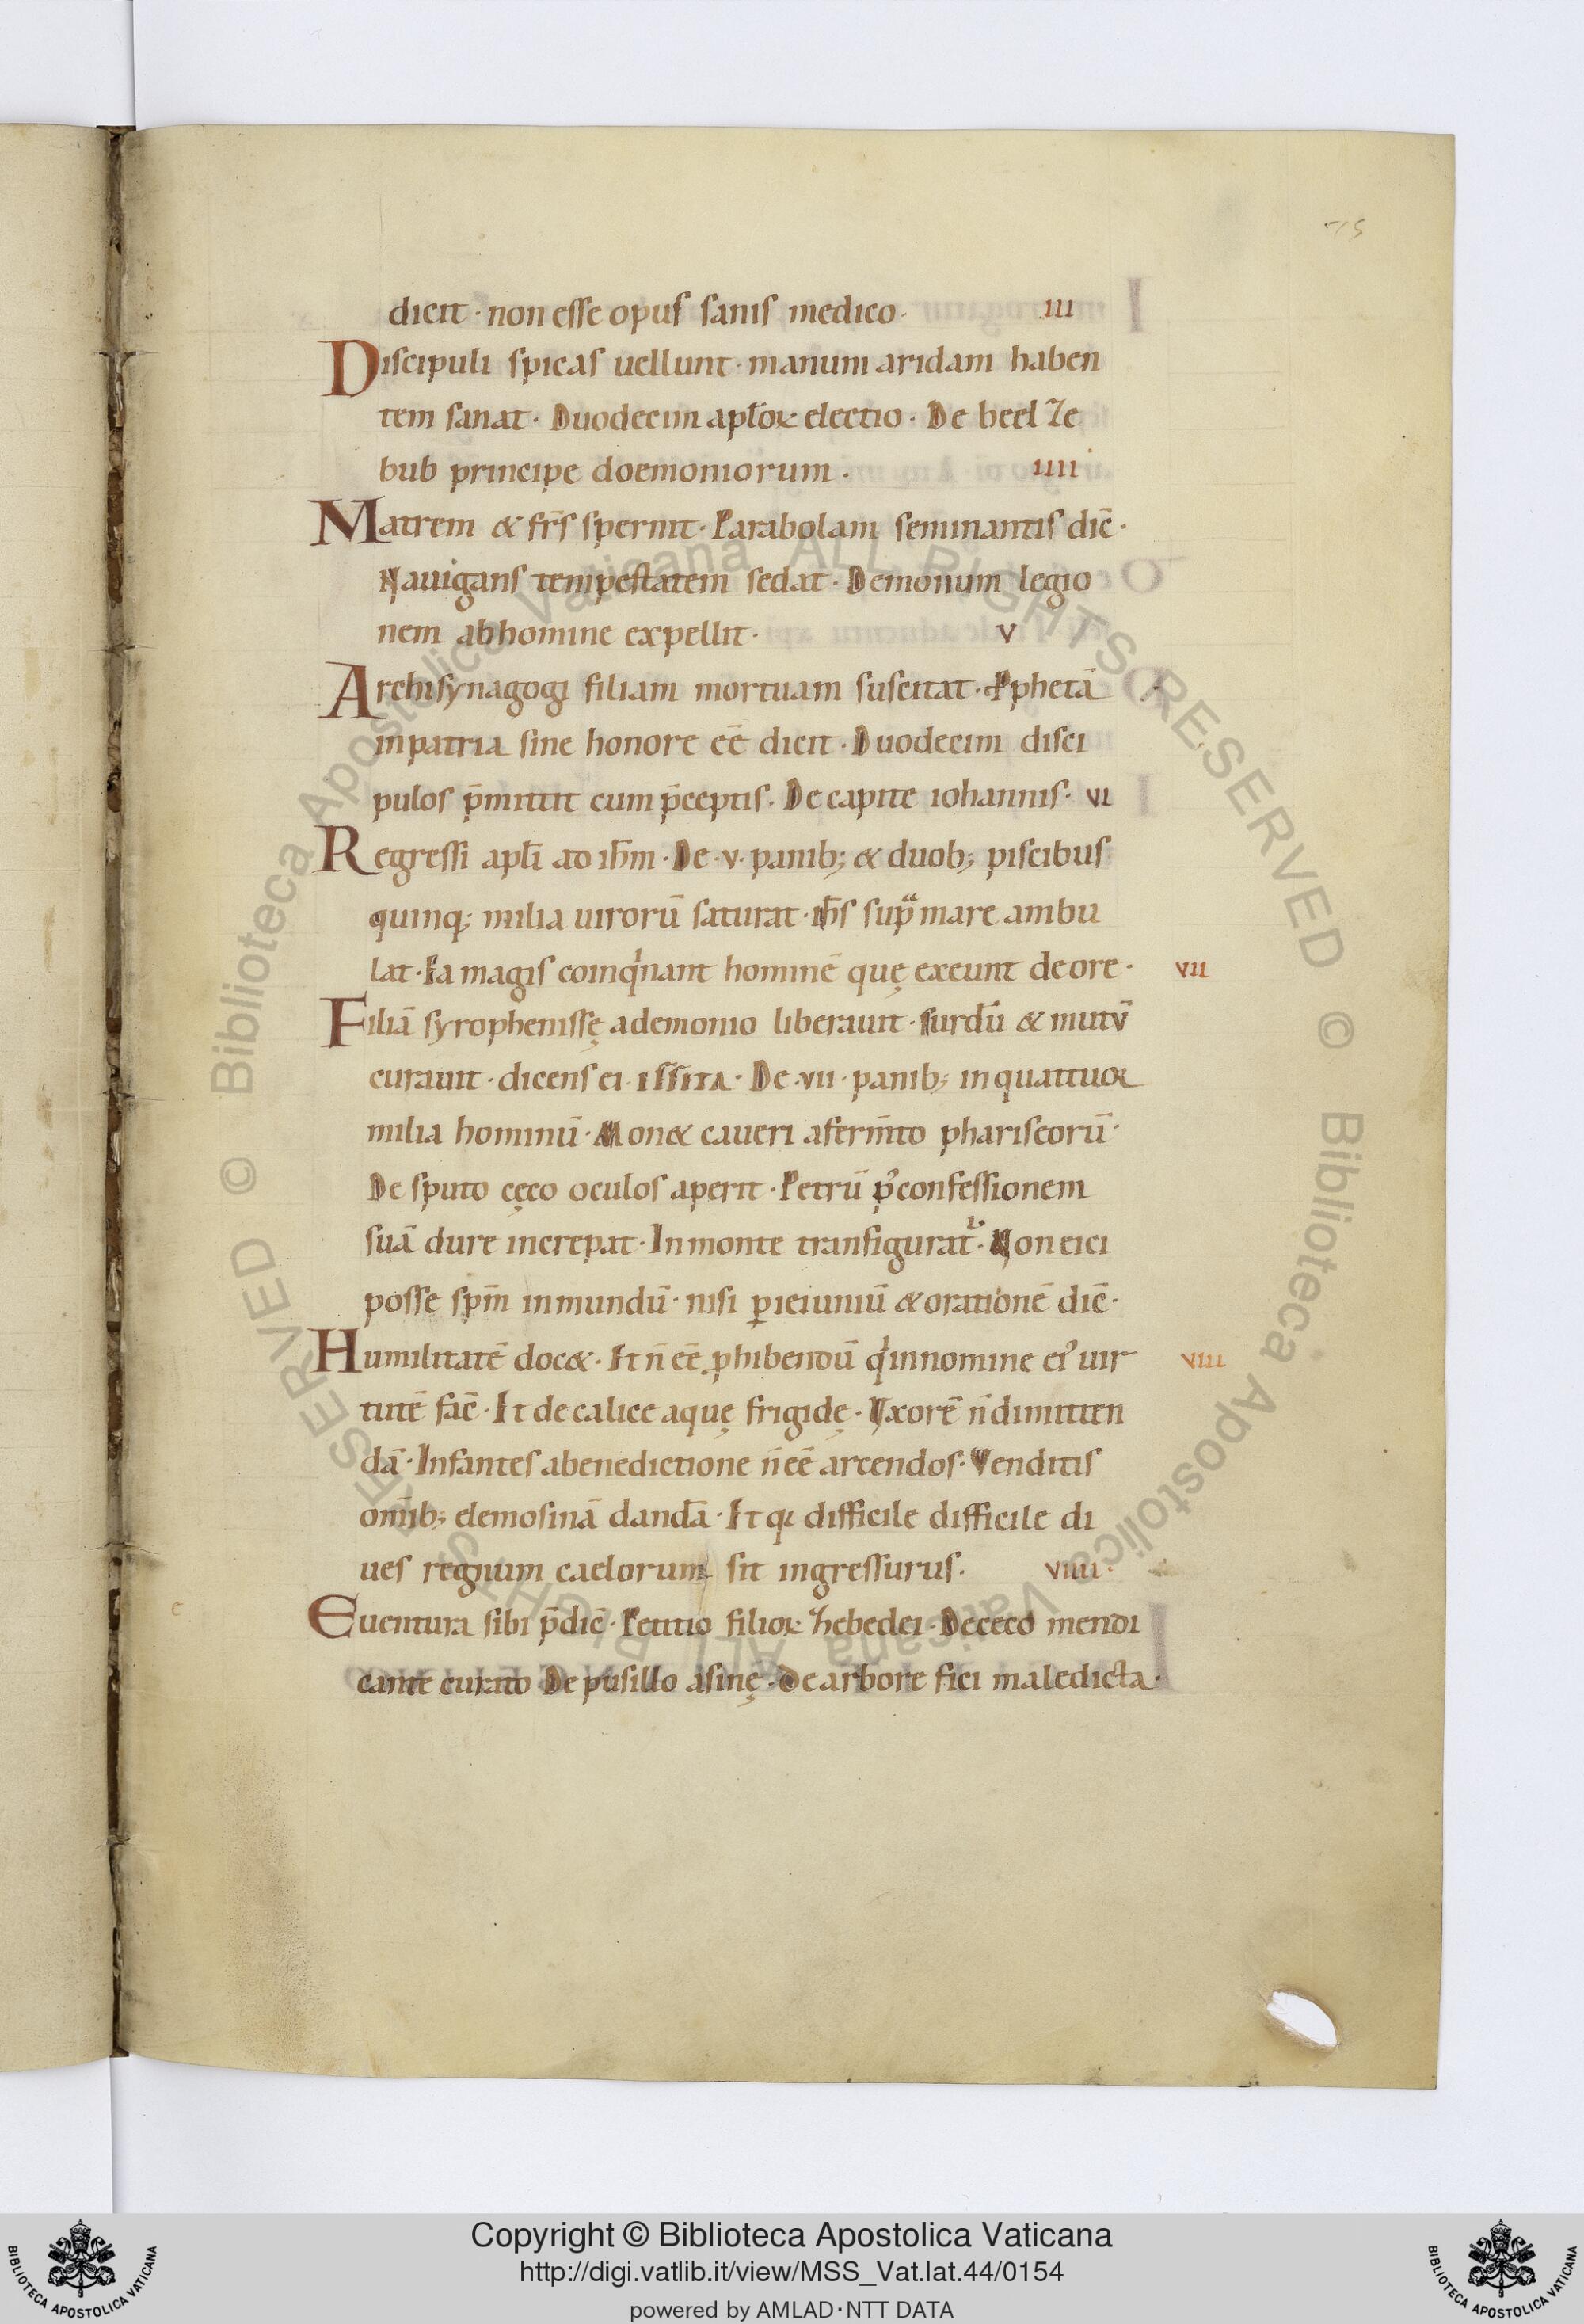 75
dicit · non esse opus sanis medico · III
Discipuli spicas uellunt · manum aridam haben
tem sanat · Duodecim aploꝝ electio · De beelze
bub principe doemoniorum · IIII
Matrem & fr̄s spernit · Parabolam seminantis dic̄ ·
Nauigans tempestatem sedat · Demonum legio
nem ab homine expellit · V
Archisynagogi filiam mortuam suscitat · Pphetā
in patria sine honore eē dicit · Duodecim disci
pulos p̄mittit cum p̄ceptis · De capite iohannis · VI
Regressi apłi ad ih̄m · De · v · panib; & duob; piscibus
quinq; milia uirorū saturat · ih̄s sup̱ᵃ mare ambu
lat · Ea magis coinqⁱnant hominē quę exeunt de ore · VII
Filiā syrophenissę a demonio liberauit · surdū & mutū
curauit · dicens ei · · De · vii · panib; in quattuor
milia hominū · Mon& caueri a ferm̄to phariseorū ·
De sputo cęco oculos aperit · Petrū p' confessionem
suā dure increpat · In monte transfigurat᷑ · Non eici
posse sp̄m inmundū · nisi ꝑ ieiuniū & orationē dic̄ ·
Humilitatē doc& · Et n̄ eē ꝓhibendū qⁱ in nomine ei' uir VIII
tutē fac̄ · Et de calice aquę frigidę · Vxorē n̄ dimitten
dā · Infantes a benedictione n̄ eē arcendos · Venditis
om̄ib; elemosinā dandā · Et qꝫ difficile difficile di
ues regnum caelorum sit ingressurus · VIIII ·
Euentura sibi p̄dic̄ · Petitio filioꝝ zebedei · De ceco mendi
cante curato De pusillo asinę · De arbore fici maledicta ·
© Biblioteca Apostolica Vaticana ALL RIGHTS RESERVED © Biblioteca Apostolica Vaticana ALL RIGHTS RESERVED
Copyright © Biblioteca Apostolica Vaticana
http://digi.vatlib.it/view/MSS_Vat.lat.44/0154
powered by AMLAD·NTT DATA
BIBLIOTECA APOSTOLICA VATICANA
BIBLIOTECA APOSTOLICA VATICANA